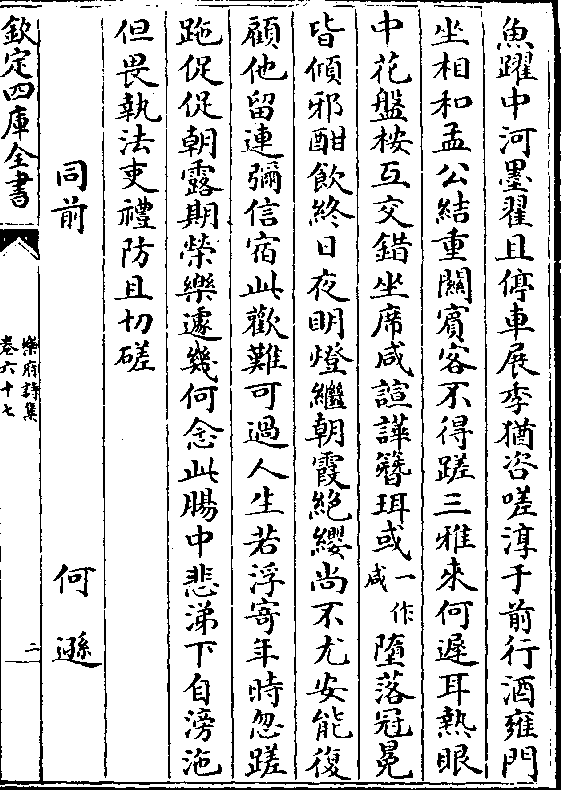 魚躍中河墨翟且停車展季猶咨嗟淳于前行酒雍門
坐相和孟公結重關賓客不得蹉三雅來何遲耳熱眼
中花盤桉互交錯坐席咸諠譁簪珥或一作咸墮落冠冕
皆傾邪酣飲終日夜明燈繼朝霞絶纓尚不尤安能復
顧他留連彌信宿此歡難可過人生若浮寄年時忽蹉
跎促促朝露期榮樂遽幾何念此腸中悲涕下自滂沱
但畏執法吏禮防且切磋
同前 何遜
欽定四庫全書
樂府詩集
卷六十七
二